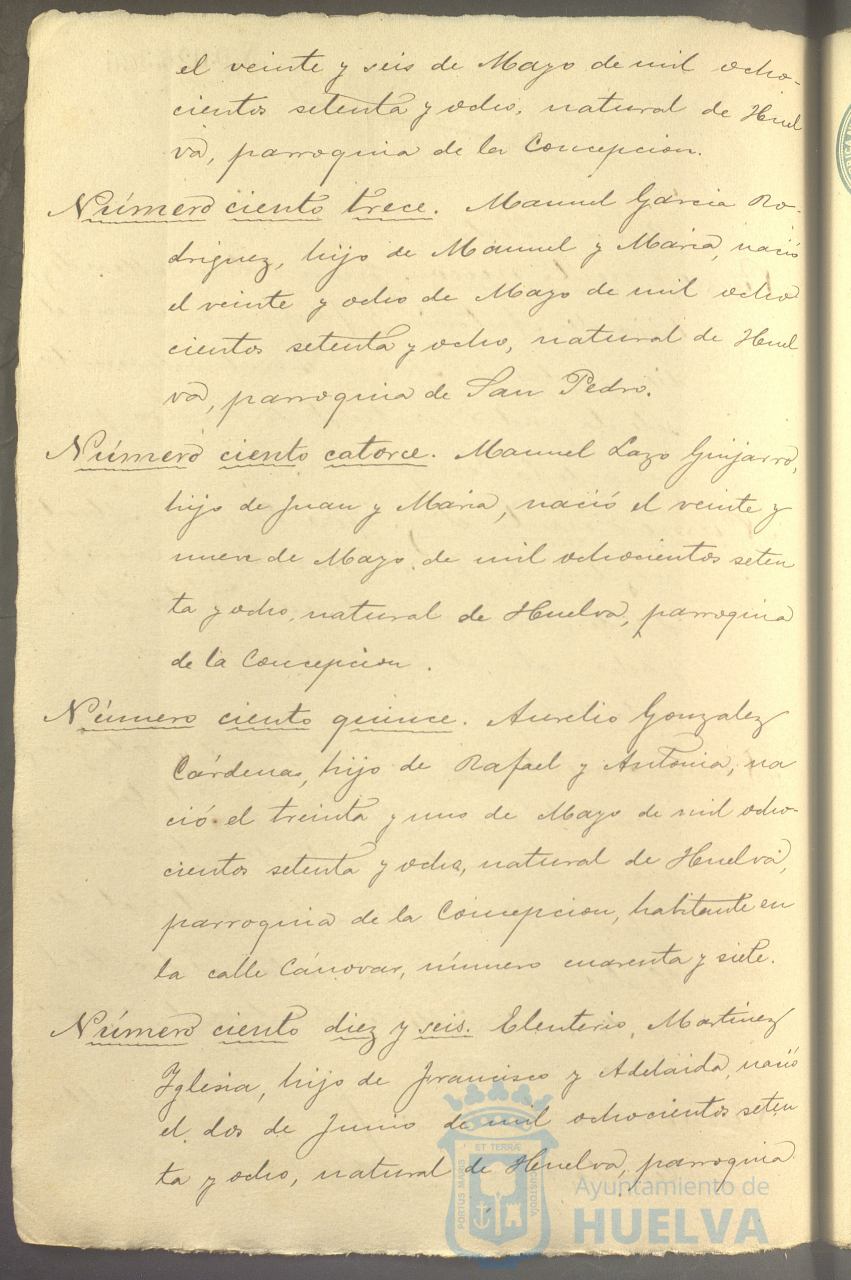 el veinte y seis de Mayo de mil ocho-
cientos setenta y ocho, natural de Huel
va, parroquia de la Concepcion.
Número ciento trece. Manuel Garcia Ro-
driguez, hijo de Manuel y Maria, nació
el veinte y ocho de Mayo de mil ocho
cientos setenta y ocho, natural de Huel
va, parroquia de San Pedro.
Número ciento catorce. Manuel Lazo Guijarro,
hijo de Juan y Maria, nació el veinte y
nueve de Mayo de mil ochocientos seten
ta y ocho, natural de Huelva, parroquia
de la Concepcion.
Número ciento quince. Aurelio Gonzalez
Cárdenas, hijo de Rafael y Antonia, na
ció el treinta y uno de Mayo de mil ocho-
cientos setenta y ocho, natural de Huelva,
parroquia de la Concepcion, habitante en
la calle Cánovas, número cuarenta y siete.
Número ciento diez y seis. Eleuterio Martinez
Yglesia, hijo de Francisco y Adelaida, nació
el dos de Junio de mil ochocientos seten
ta y ocho, natural de Huelva, parroquia
PORTUS MARIS ET TERRÆ CUSTODIA
Ayuntamiento de
HUELVA